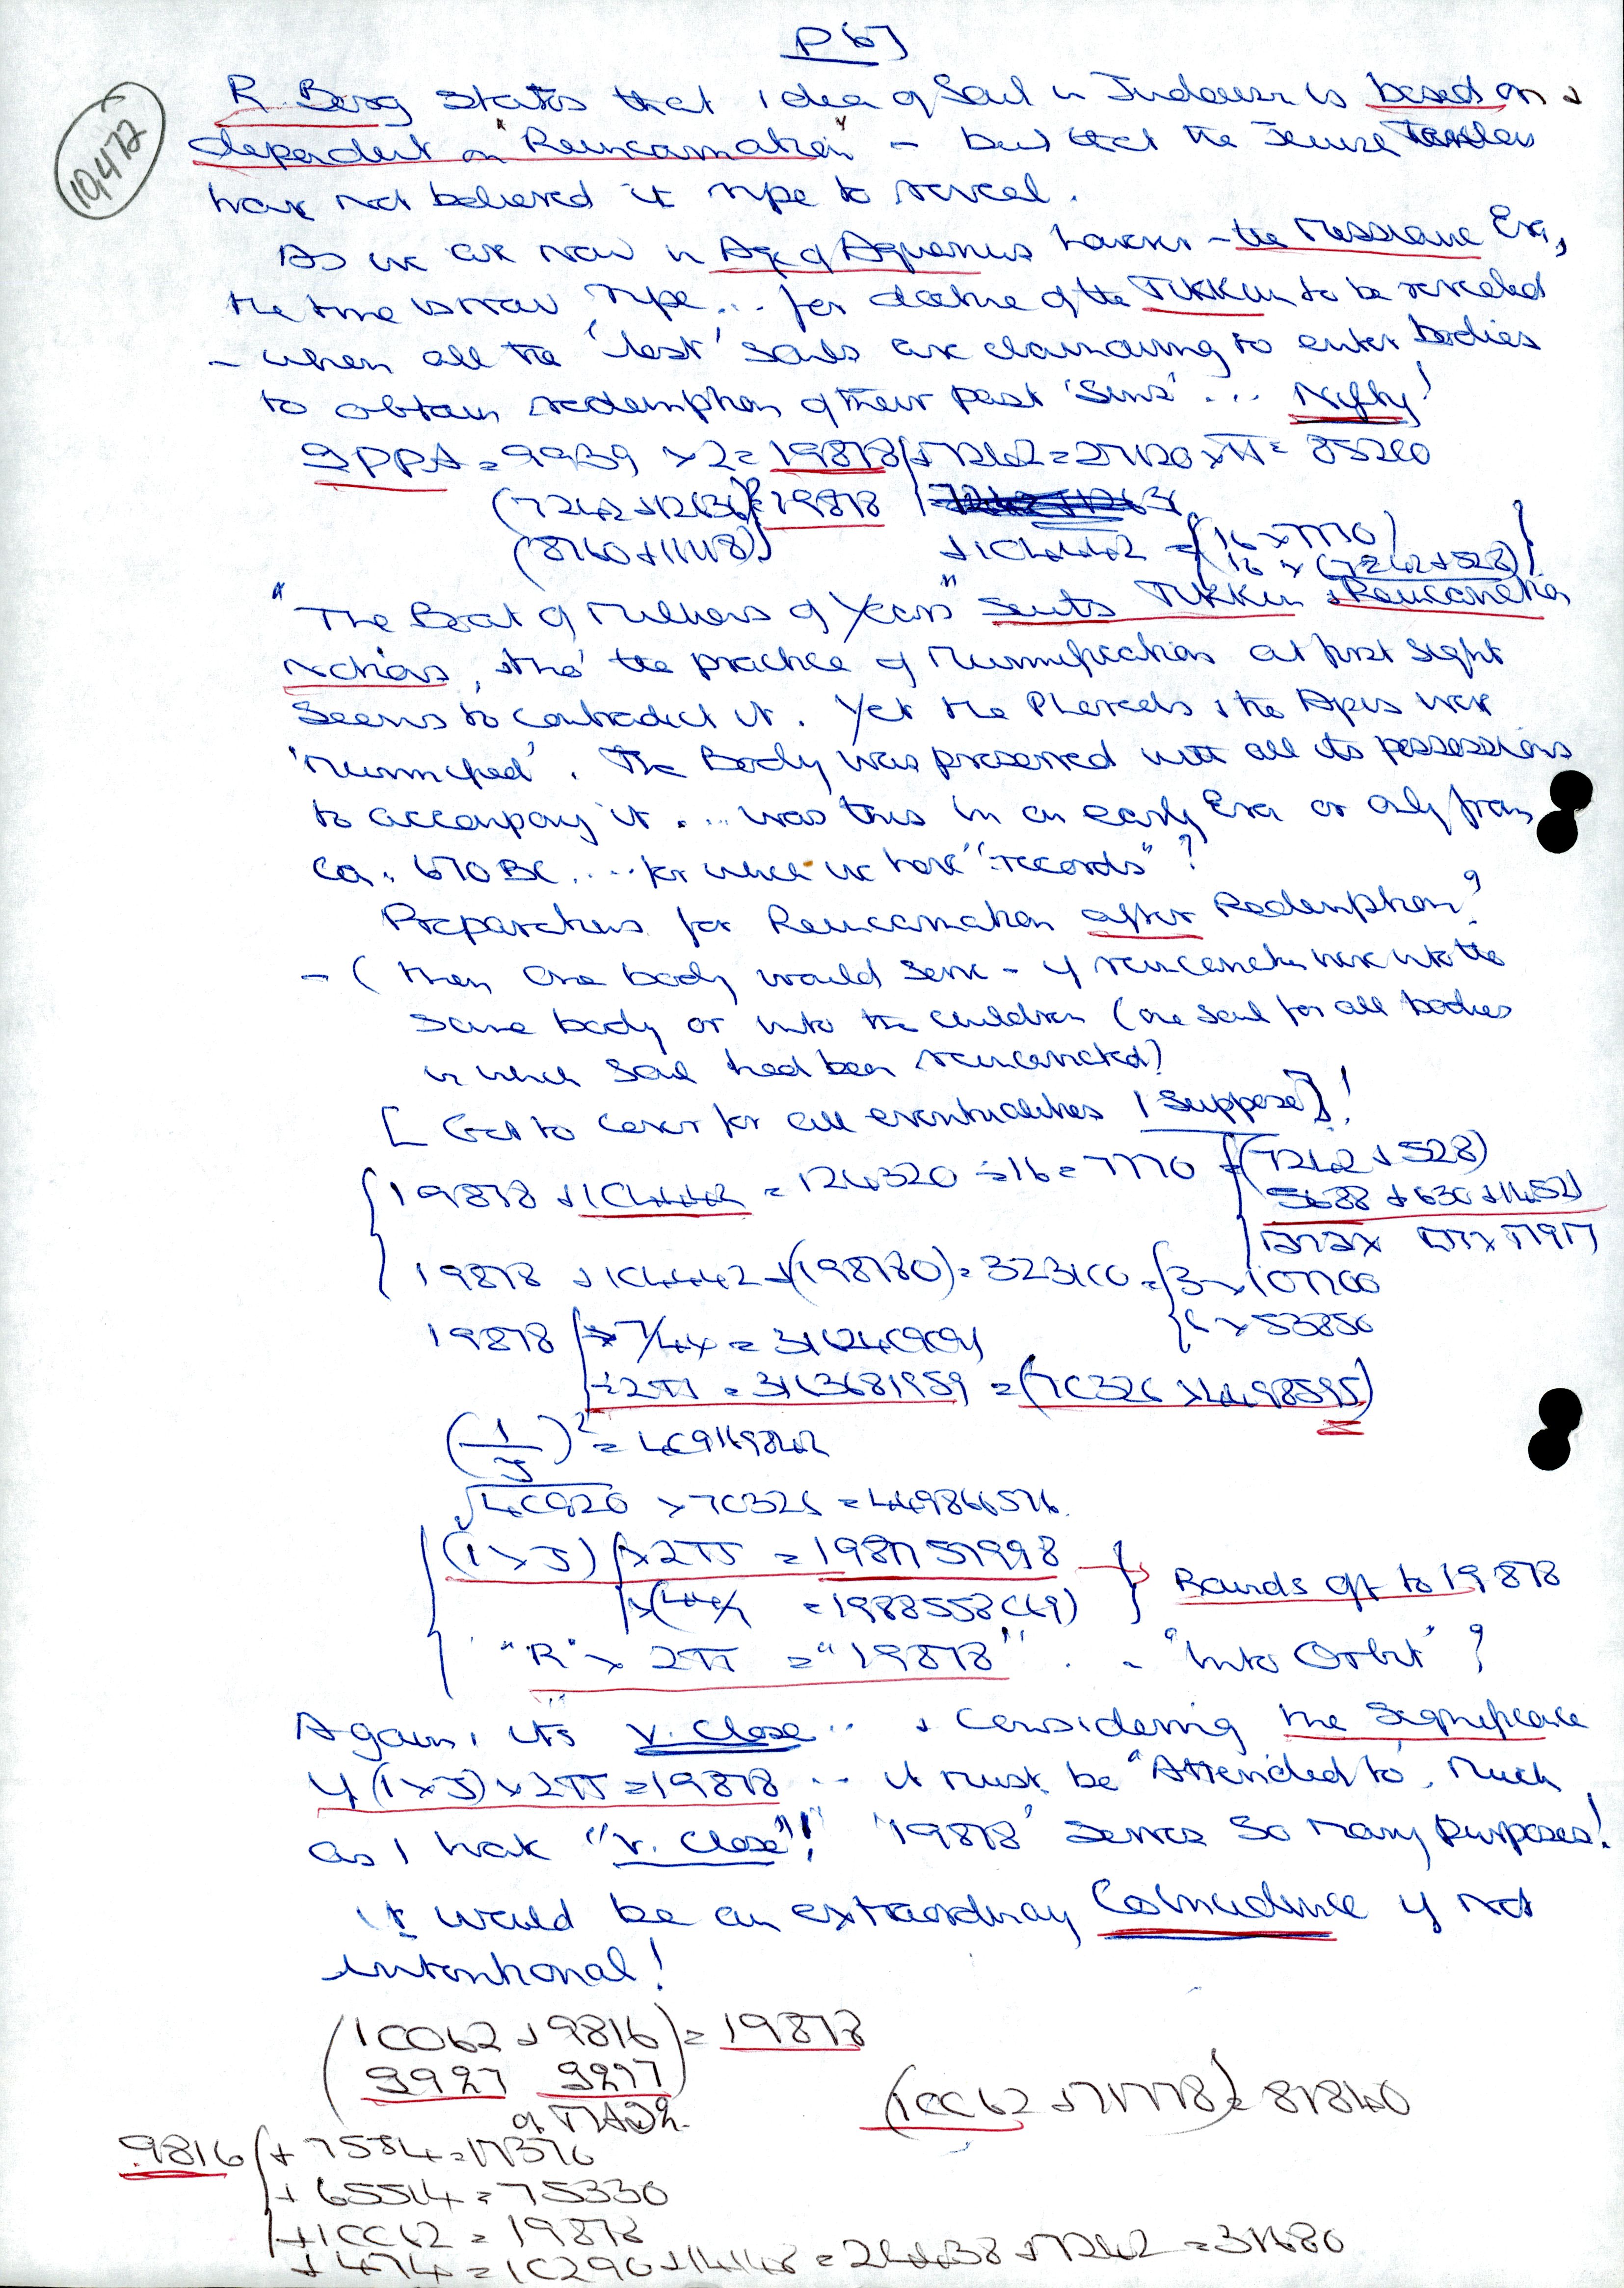 P 67
10,472
R. Berg states that idea of Soul in Judaism is based on &
dependent on "Reincarnation" – but that the
have not believed it ripe to reveal.
As we are now in Age of Aquarius – the Messianic Era,
the time is now ripe... for doctrine of the TIKKUN to be revealed
– when all the 'lost' souls are clamouring to enter bodies
to obtain redemption of their past 'Sins'... Nifty!
= 9939 × 2 = 19878 + 7242 = 27120 × π = 85200
(7242 + 12636) = 19878
(8760 + 11118)
+ 104442 = (16 × 7770)
16 × (7242 + 528)
"The Boat of Millions of Years" suits TIKKUN & Reincarnation
notions, tho' the practice of Mummification at first sight
seems to contradict it. Yet the Pharaohs & the Apis were
'Mummified'. The Body was preserved with all its possessions
to accompany it... was this in an early Era or only from
ca. 670 BC.... for which we have "records"?
Preparations for Reincarnation after Redemption?
– (then one body would serve – if reincarnation were into the
same body or into the children (one soul for all bodies
in which soul had been reincarnated)
[Got to cover for all eventualities I suppose]!
19878 + 104442 = 124320 ÷ 16 = 7770 = (7242 + 528)
5688 + 630 + 1452
19878 + 104442 + (198780) = 323100 = 3 × 107700
6 × 53850
19878
÷ 2π = 3163681959 = (70326 × 4498595)
(1/J)² = 409169842
√40920 × 70326 = 449866576
(1 × J) × 2π = 1987757998
= 1988558(49)
Rounds off to 19878
"R" × 2π = "19878" .. "Into Orbit"?
Again, it's v. close .. & considering the significance
if (1 × J) × 2π = 19878 .. it must be "Attended to", Much
as I hate "v. close"!! '19878' serves so many purposes!
It would be an extraordinary Coincidence if not
intentional!
(10062 + 9816) = 19878
(10062 + 71778) = 81840
9816 + 7554 = 17370
+ 65514 = 75330
+ 10062 = 19878
+ 474 = 10290 + 14148 = 24438 + 7242 = 31680